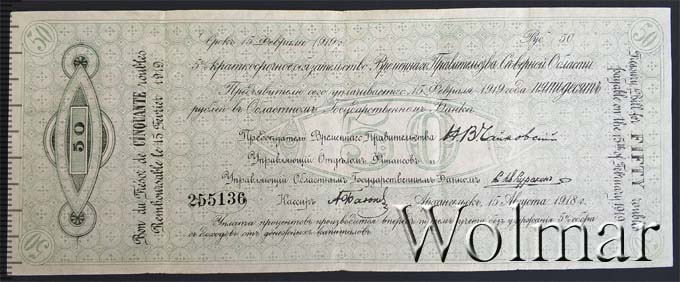 50
50
Срокъ 15 Февраля 1919 г.
Руб. 50
5% краткосрочное обязательство Временнаго Правительства Сѣверной Области
Предъявителю сего уплачивается 15 Февраля 1919 года пятьдесятъ
рублей въ Областномъ Государственномъ Банкѣ
50
Предсѣдатель Временнаго Правительства Н.В. Чайковскій
Управляющій Отдѣломъ Финансовъ
Управляющій Областнымъ Государственнымъ Банкомъ
255136
Кассиръ
Архангельскъ, 15 Августа 1918 г.
Уплата процентовъ производится впередъ путемъ учета съ удержаніемъ 5% сбора
съ доходовъ отъ денежныхъ капиталовъ.
50
Bon du Trésor de CINQUANTE roubles
Remboursable le 15 Février 1919
Treasury Bill for FIFTY roubles
payable on the 15th of February 1919
50
50
Wolmar